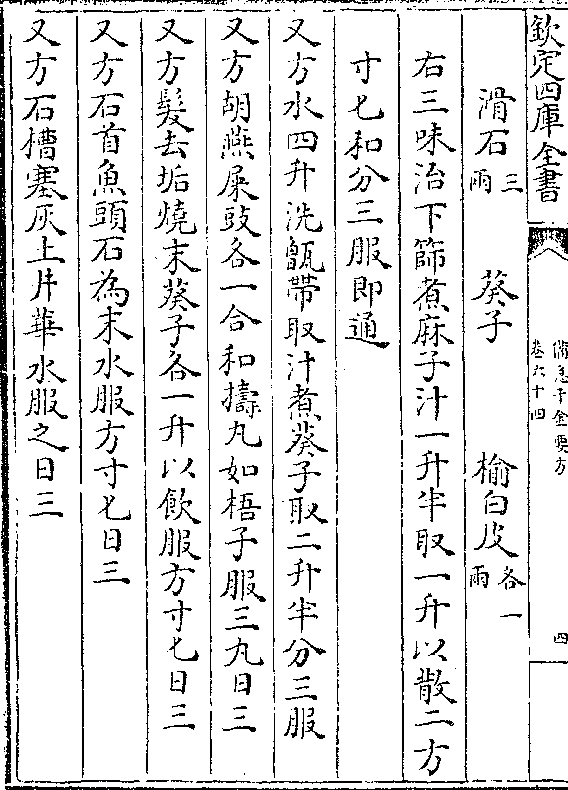 欽定四庫全書
備急千金要方
卷六十四
四
滑石三兩 葵子 榆白皮各一兩
右三味治下篩煮麻子汁一升半取一升以散二方
寸匕和分三服即通
又方水四升洗甑帶取汁煮葵子取二升半分三服
又方胡燕屎豉各一合和擣丸如梧子服三丸日三
又方髮去垢燒末葵子各一升以飲服方寸匕日三
又方石首魚頭石為末水服方寸匕日三
又方石槽塞灰土井華水服之日三